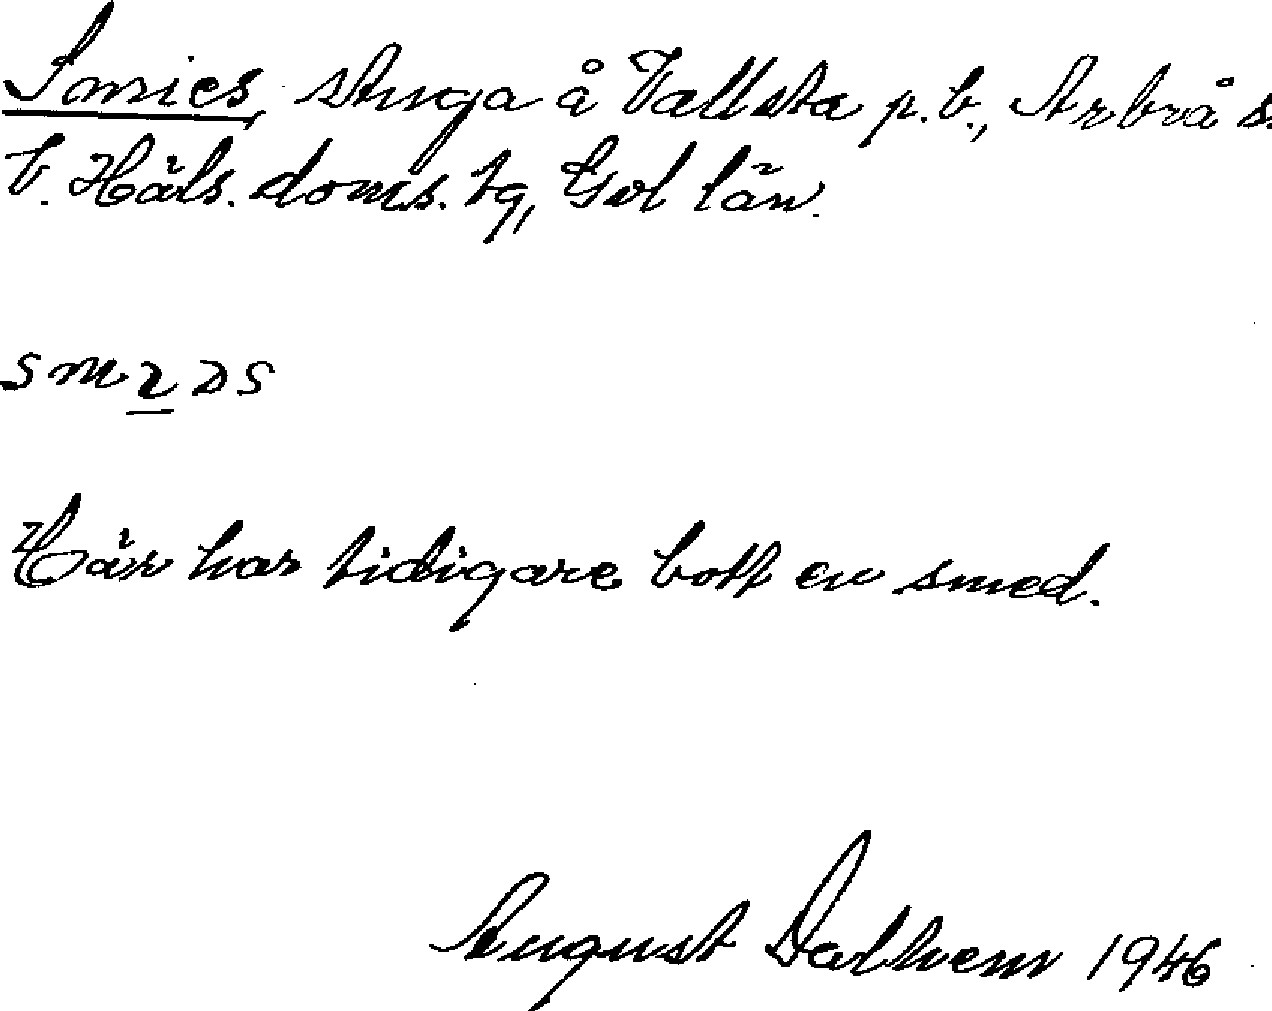 Smies, stuga å Vallsta p.b., Arbrå s.
V. Häls. doms. tg, Gvl län.
smɩds
Här har tidigare bott en smed.
August Dalhem 1946